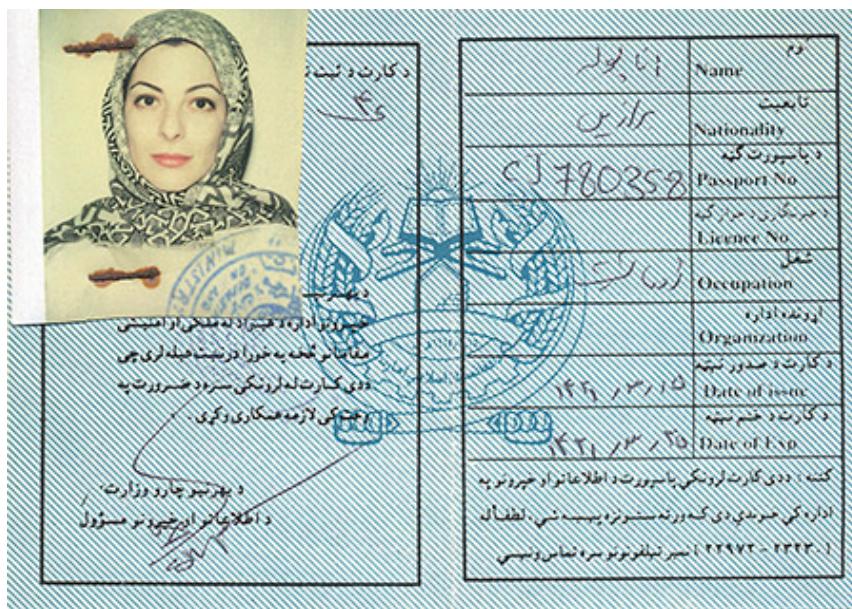 د کارت د ثبت
۴۶
د بهرنیو
خبرونو اداره د هیواد له ملکي او امنیتي
مقاماتو څخه په خورا درنښت هیله لري چي
ددې کارت له لرونکي سره د ضرورت په
وخت کي لازمه همکاري وکړي .
د بهرنیو چارو وزارت
د اطلاعاتو او خبرونو مسؤول
نوم
Name
انا پولا
تابعیت
Nationality
برازیل
د پاسپورت ګڼه
Passport No
CJ 780358
Licence No
شغل
Occupation
ژورنالیست
اړونده اداره
Organization
د کارت د صدور نېټه
Date of issue
۱۴۲۱ / ۳ / ۱۵
د کارت د ختم نېټه
Date of Exp
۱۴۲۱ / ۳ / ۲۵
ددې کارت لرونکي پاسپورت د اطلاعاتو او خبرونو په
اداره کي دي که ورته ستونزه پیښه شي . لطفاً له
( ۲۲۹۷۲ - ۲۳۲۳۰ ) نمبر تیلفونونو سره تماس ونیسي